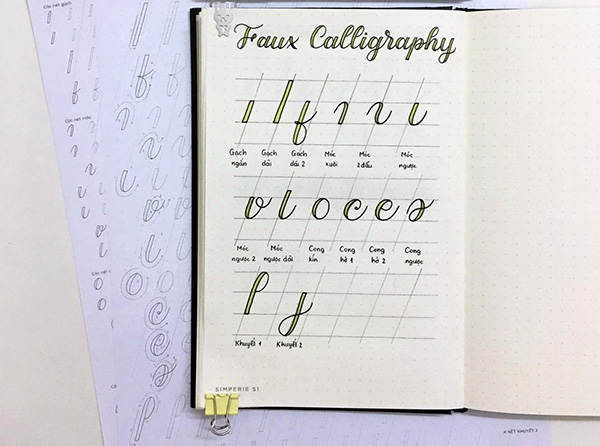 Các nét gạch
Các nét móc
Faux Calligraphy
Gạch ngắn
Gạch dài
Gạch dài 2
Móc xuôi
Móc 2 đầu
Móc ngược
Móc ngược 2
Móc ngược dài
Cong kín
Cong hở 1
Cong hở 2
Cong ngược
Khuyết 1
Khuyết 2
SIMPERIE 51
NÉT KHUYẾT 2